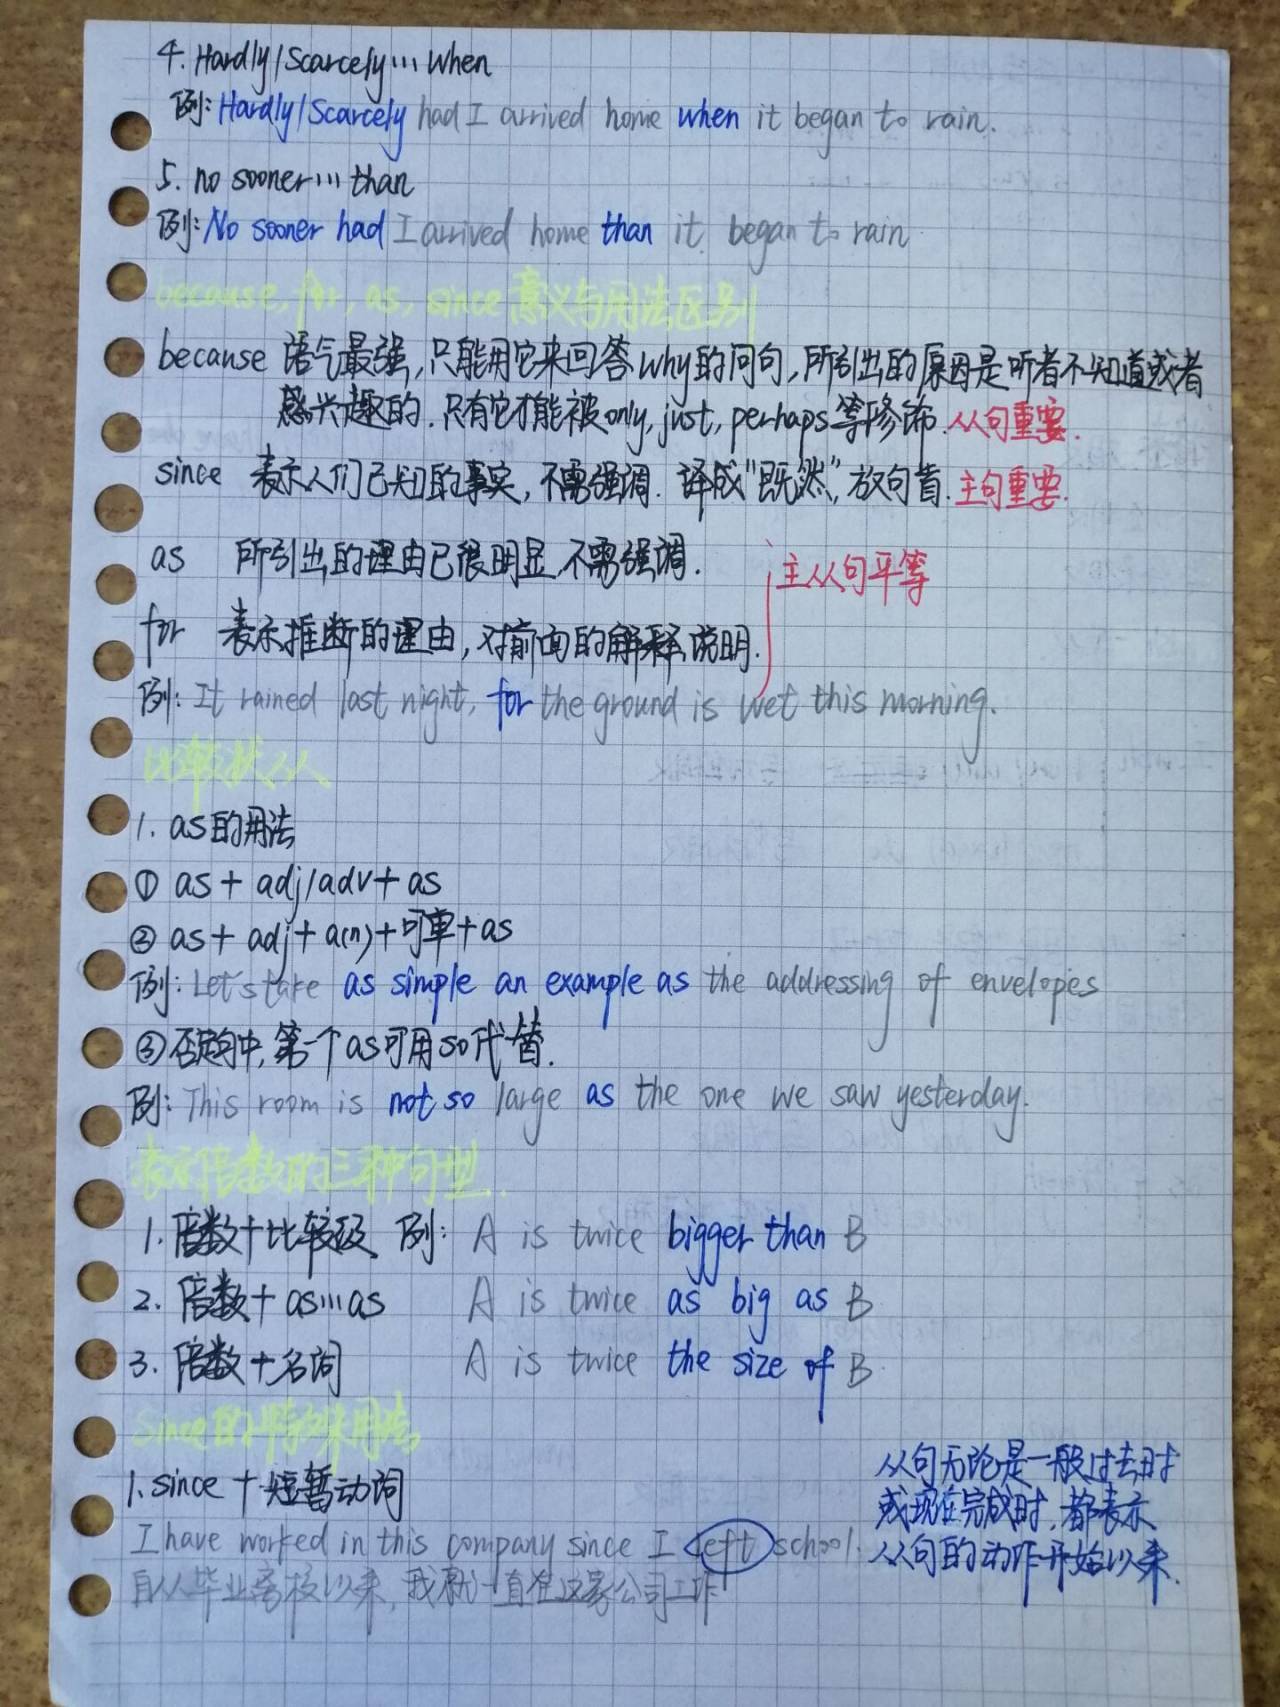 4. Hardly/Scarcely…When
例: Hardly/Scarcely had I arrived home when it began to rain.
5. no sooner…than
例: No sooner had I arrived home than it began to rain
because, for, as, since 意义与用法区别
because 语气最强,只能用它来回答why的问句,所引出的原因是听者不知道或者
感兴趣的.只有它才能被only, just, perhaps等修饰.从句重要.
since 表示人们已知的事实,不需强调.译成"既然",放句首.主句重要.
as 所引出的理由已很明显,不需强调.
主从句平等
for 表示推断的理由,对前面的解释说明.
例: It rained last night, for the ground is wet this morning.
比较状从
1. as的用法
① as + adj/adv + as
② as + adj + a(n) + 可单 + as
例: Let's take as simple an example as the addressing of envelopes
③ 否定句中,第一个as可用so代替.
例: This room is not so large as the one we saw yesterday.
表示倍数的三种句型.
1. 倍数+比较级 例: A is twice bigger than B
2. 倍数+ as…as A is twice as big as B
3. 倍数+名词 A is twice the size of B
Since的特殊用法
1. since + 短暂动词
I have worked in this company since I left school.
自从毕业离校以来,我就一直在这家公司工作
从句无论是一般过去时
或现在完成时,都表示
从句的动作开始以来.